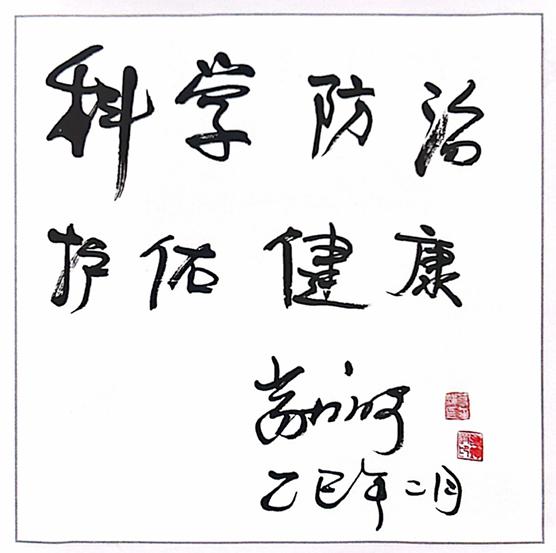 科学防治
护佑健康
乙巳年二月